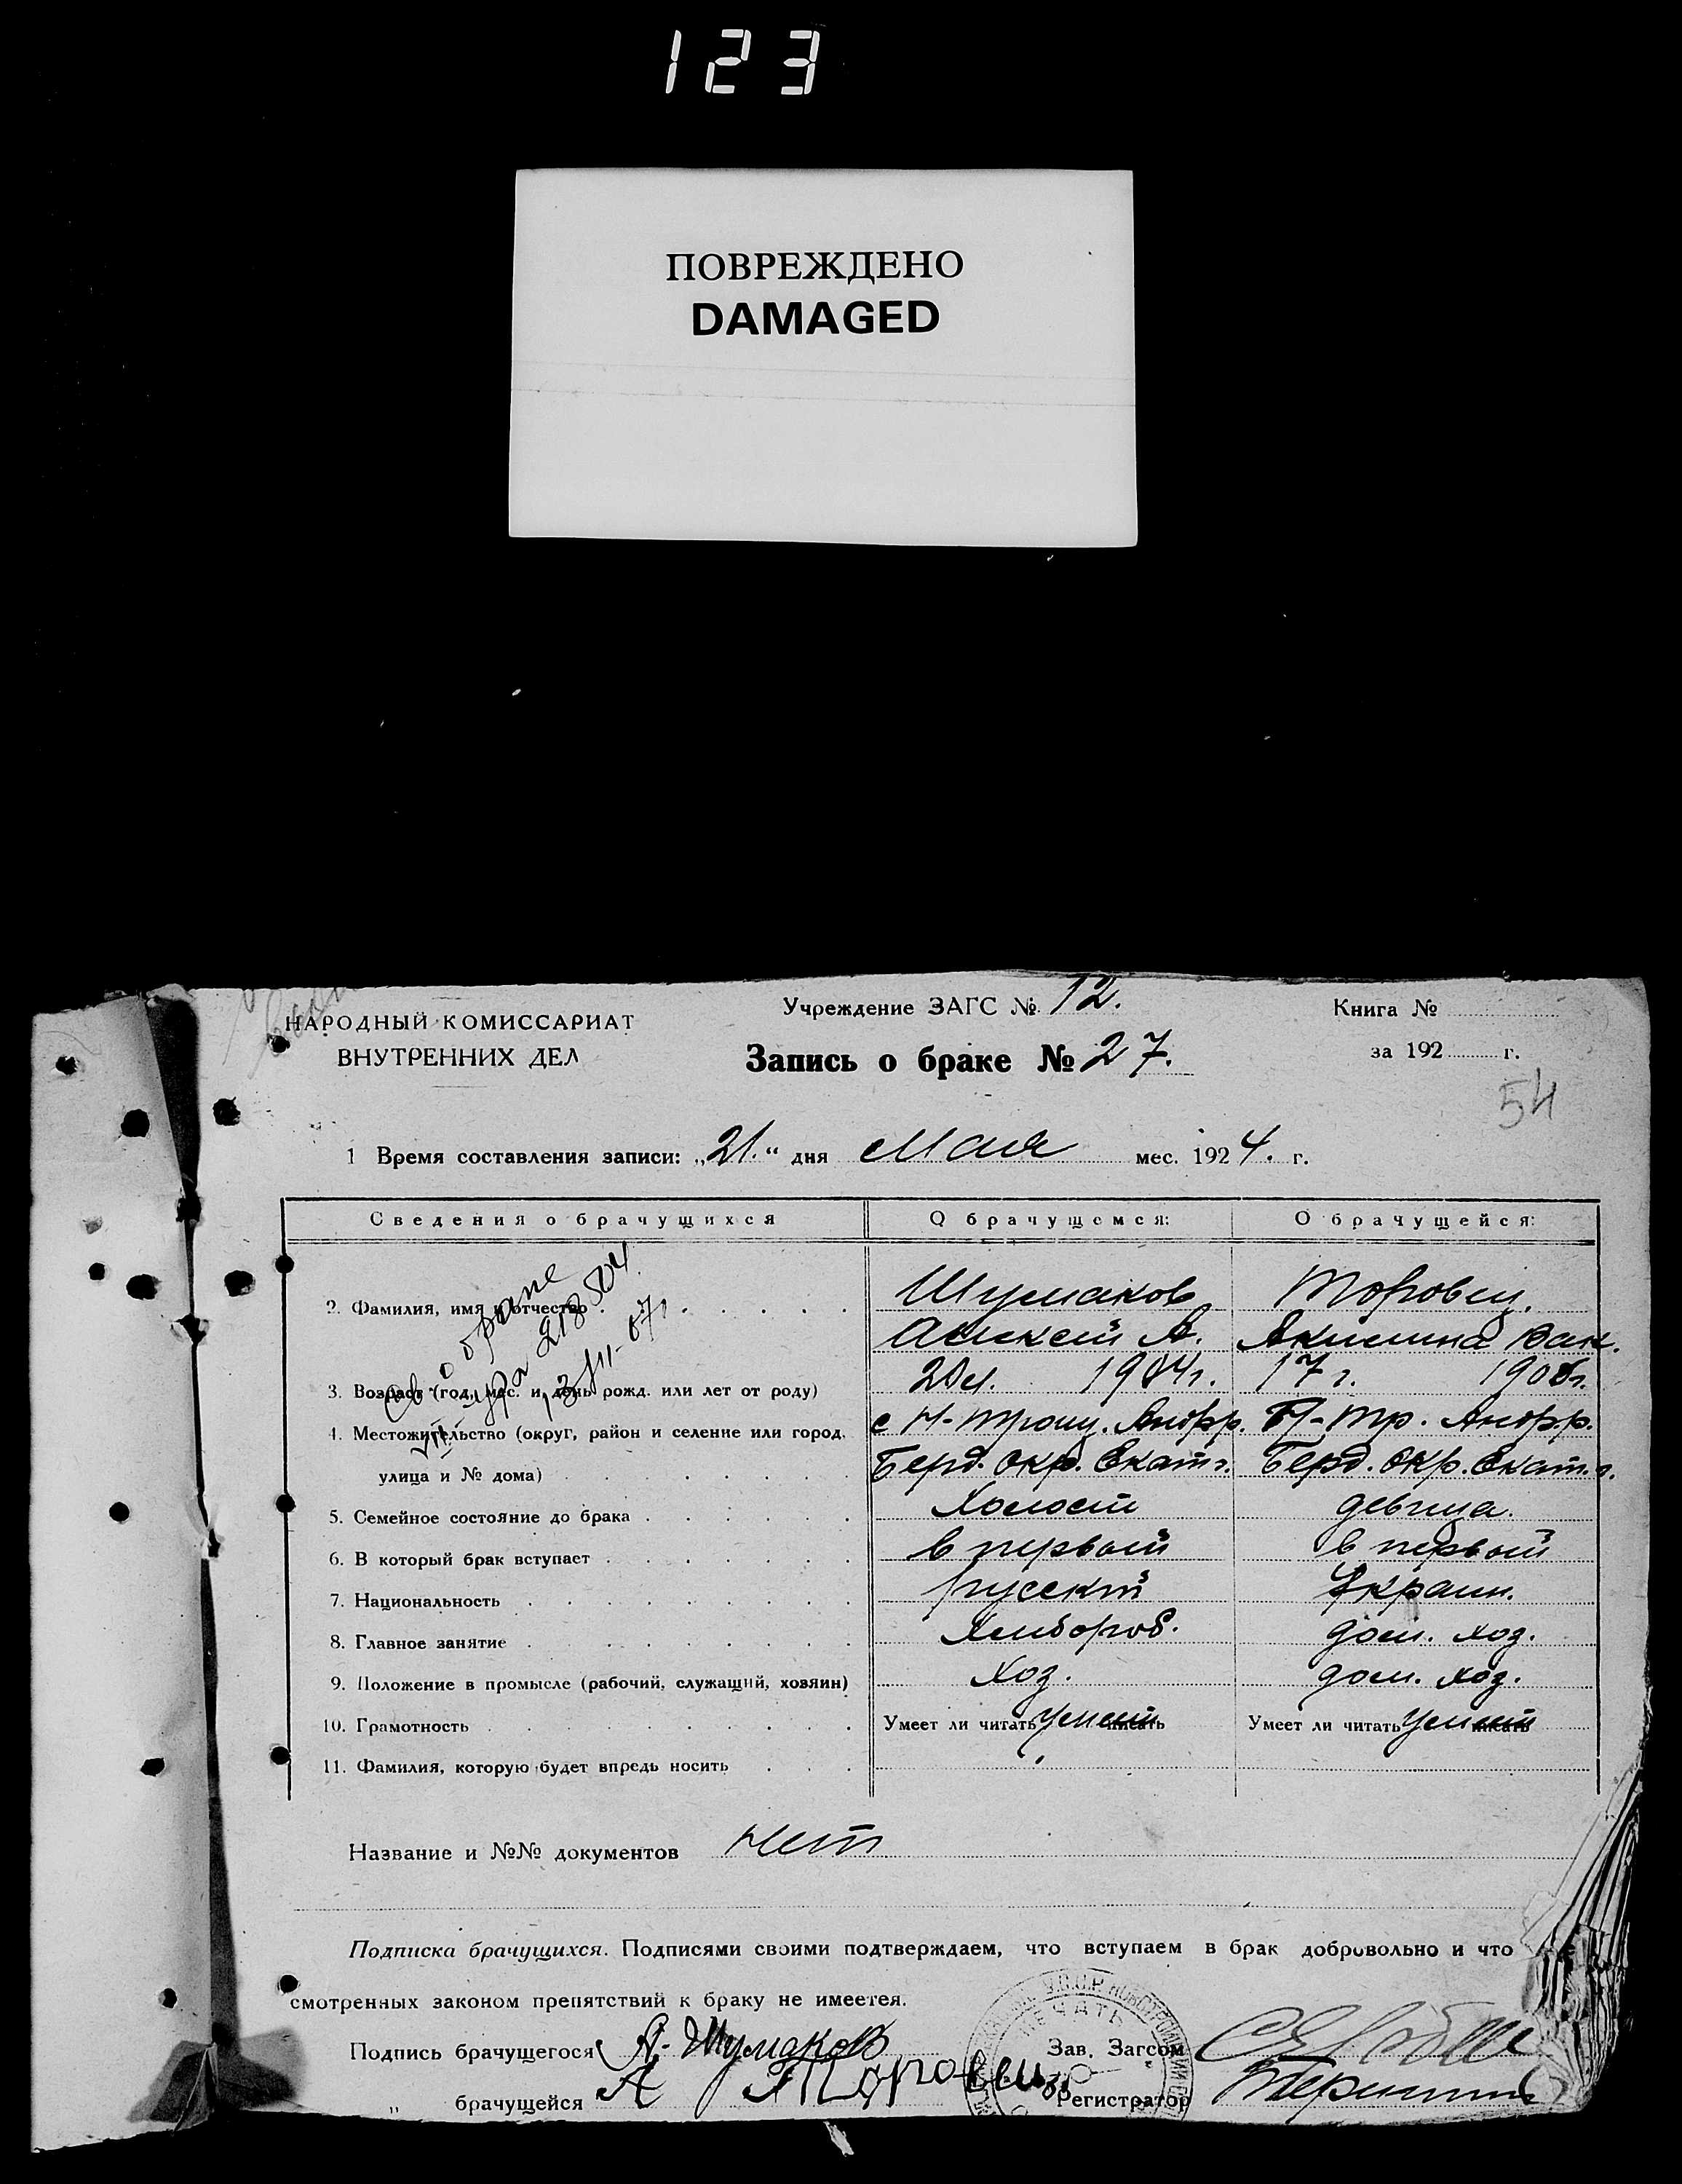 123
ПОВРЕЖДЕНО
DAMAGED
НАРОДНЫЙ КОМИССАРИАТ
ВНУТРЕННИХ ДЕЛ
Учреждение ЗАГС № 12.
Запись о браке № 27.
Книга №
за 192 г.
54
1 Время составления записи: „21.“ дня Мая мес. 1924. г.
Сведения о брачущихся О брачущемся: О брачущейся:
2. Фамилия, имя и отчество Шумаков Торовец.
Алексей А. Акилина Вак.
3. Возраст (год, мес. и день рожд. или лет от роду) 20 л. 1904 г. 17 г. 1906 г.
4. Местожительство (округ, район и селение или город, с Н-Троиц. Андр р. Н-Тр. Андр р.
улица и № дома) Берд. окр. Екат г. Берд. окр. Екат. г.
5. Семейное состояние до брака Холост девица.
6. В который брак вступает в первый в первый
7. Национальность русский Украин.
8. Главное занятие Хлебороб. дом. хоз.
9. Положение в промысле (рабочий, служащий, хозяин) Хоз. дом. хоз.
10. Грамотность Умеет ли читать Умеет писать Умеет ли читать Умеет писать
11. Фамилия, которую будет впредь носить
Св о браке
218504
Название и №№ документов нет
Подписка брачущихся. Подписями своими подтверждаем, что вступаем в брак добровольно и что
смотренных законом препятствий к браку не имеется.
Подпись брачущегося А. Шумаков Зав. Загсом
„ брачущейся А Торовец Регистратор
ПЕЧАТЬ